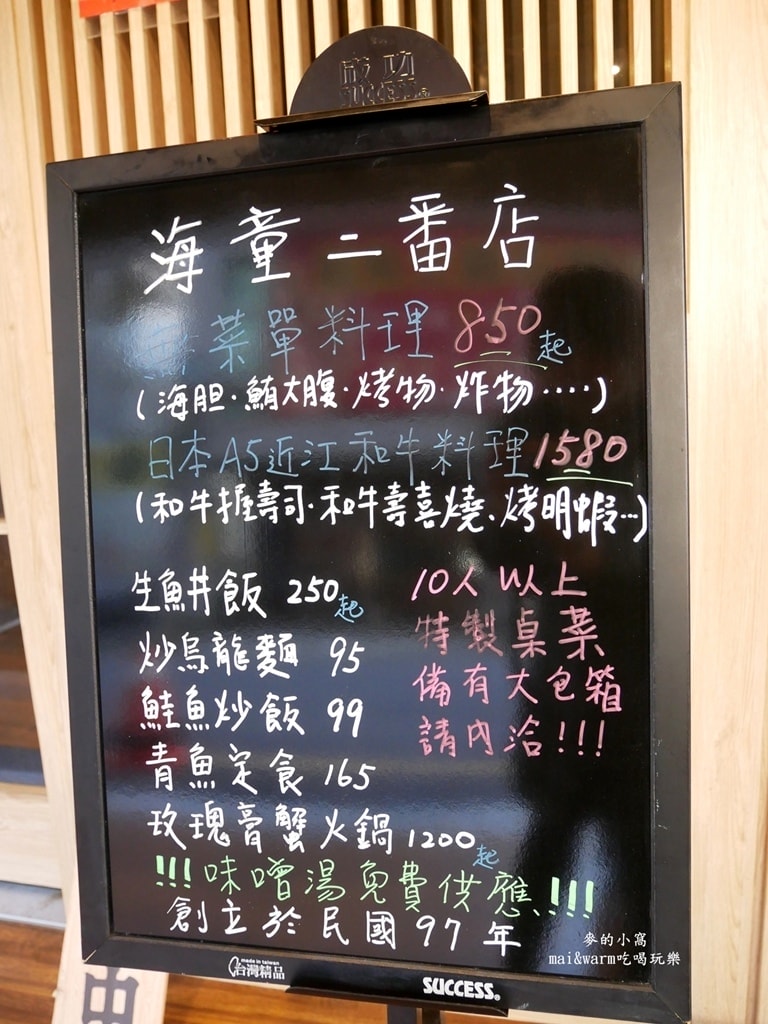 成功
SUCCESS®
海童二番店
無菜單料理 850起
(海胆·鮪大腹·烤物·炸物····)
日本A5近江和牛料理1580
(和牛握壽司·和牛壽喜燒、烤明蝦…)
生魚丼飯 250起
炒烏龍麵 95
鮭魚炒飯 99
青魚定食 165
玫瑰膏蟹火鍋1200起
10人以上
特製桌菜
備有大包箱
請內洽!!!
!!!味噌湯免費供應!!!
創立於民國97年
made in taiwan
台灣精品
SUCCESS®
麥的小窩
mai&warm吃喝玩樂